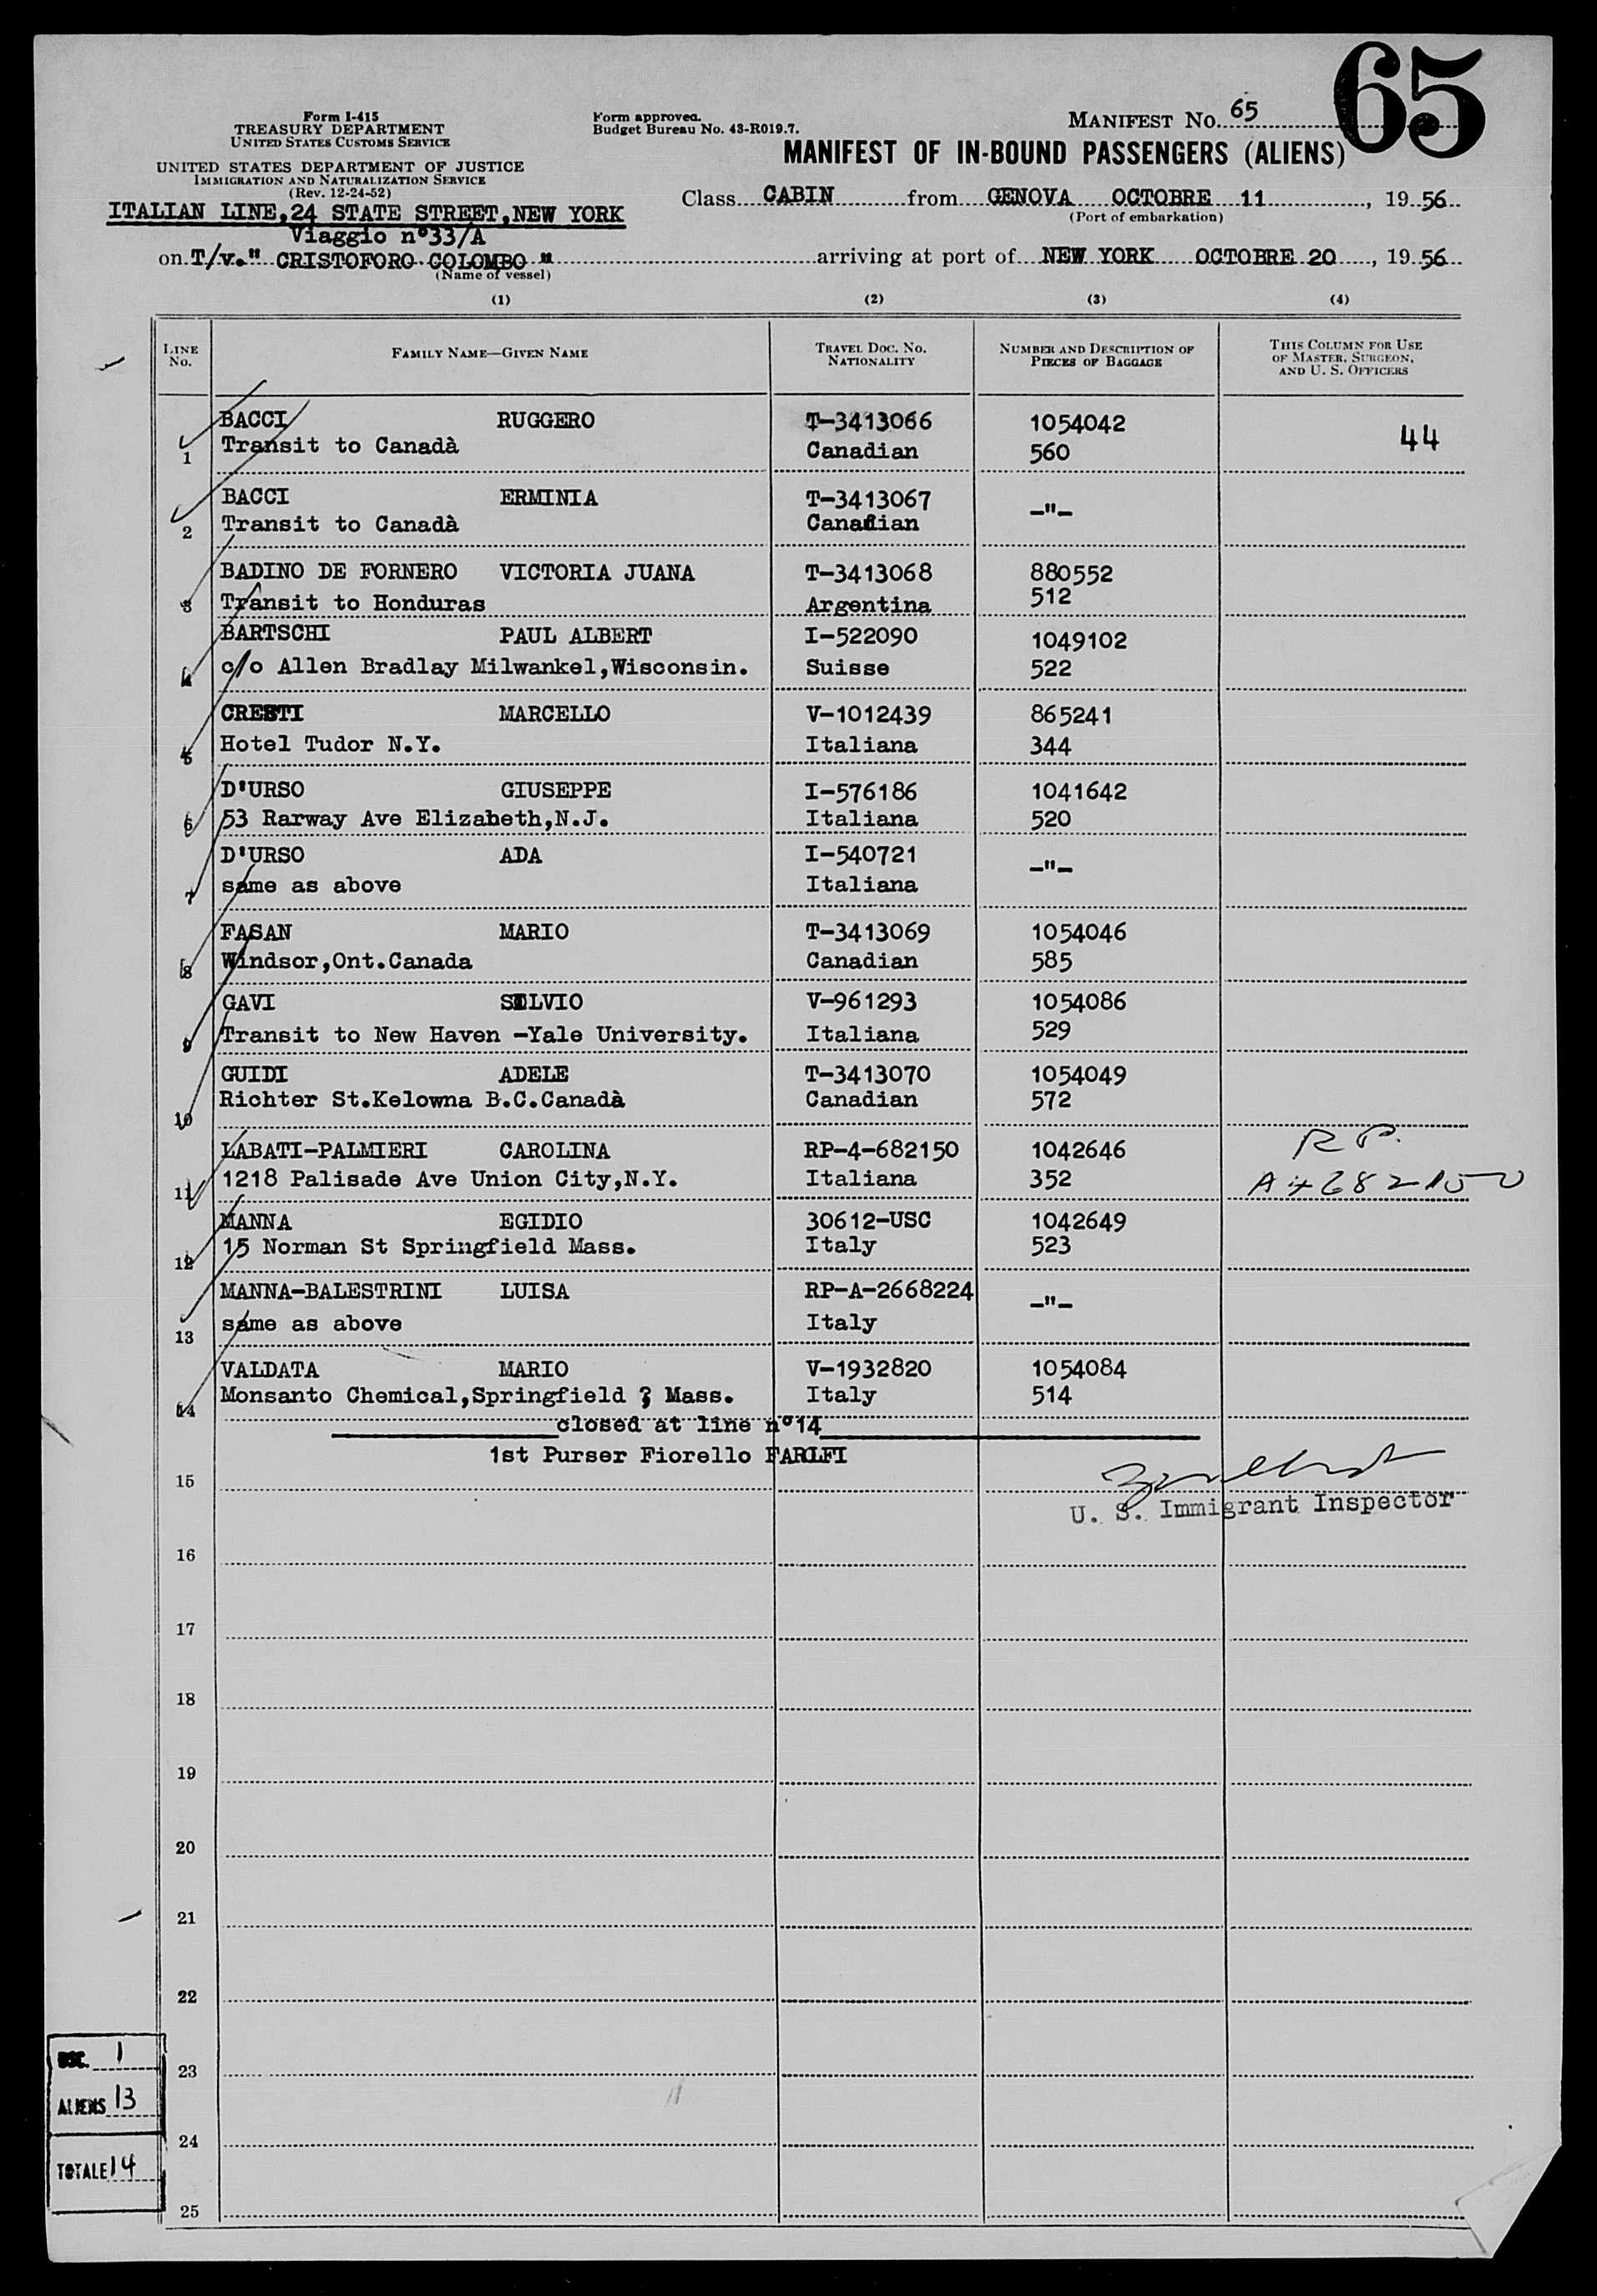 65
Form I-415
TREASURY DEPARTMENT
UNITED STATES CUSTOMS SERVICE
UNITED STATES DEPARTMENT OF JUSTICE
IMMIGRATION AND NATURALIZATION SERVICE
(Rev. 12-24-52)
ITALIAN LINE,24 STATE STREET,NEW YORK
Viaggio n°33/A
on T/v." CRISTOFORO COLOMBO "
(Name of vessel)
Form approved.
Budget Bureau No. 43-R019.7.
MANIFEST NO. 65
MANIFEST OF IN-BOUND PASSENGERS (ALIENS)
Class CABIN from GENOVA OCTOBRE 11, 1956
(Port of embarkation)
arriving at port of NEW YORK OCTOBRE 20, 1956
(1) (2) (3) (4)
LINE NO. FAMILY NAME—GIVEN NAME TRAVEL DOC. NO. NATIONALITY NUMBER AND DESCRIPTION OF PIECES OF BAGGAGE THIS COLUMN FOR USE OF MASTER, SURGEON, AND U. S. OFFICERS
BACCI RUGGERO T-3413066 1054042 44
1 Transit to Canadà Canadian 560
BACCI ERMINIA T-3413067 -"-
2 Transit to Canadà Canadian
BADINO DE FORNERO VICTORIA JUANA T-3413068 880552
3 Transit to Honduras Argentina 512
BARTSCHI PAUL ALBERT I-522090 1049102
4 c/o Allen Bradlay Milwankel,Wisconsin. Suisse 522
CRESTI MARCELLO V-1012439 865241
5 Hotel Tudor N.Y. Italiana 344
D'URSO GIUSEPPE I-576186 1041642
6 53 Rarway Ave Elizabeth,N.J. Italiana 520
D'URSO ADA I-540721 -"-
7 same as above Italiana
FASAN MARIO T-3413069 1054046
8 Windsor,Ont.Canada Canadian 585
GAVI SILVIO V-961293 1054086
9 Transit to New Haven -Yale University. Italiana 529
GUIDI ADELE T-3413070 1054049
10 Richter St.Kelowna B.C.Canadà Canadian 572
LABATI-PALMIERI CAROLINA RP-4-682150 1042646 R P.
11 1218 Palisade Ave Union City,N.Y. Italiana 352 A4682150
MANNA EGIDIO 30612-USC 1042649
12 15 Norman St Springfield Mass. Italy 523
MANNA-BALESTRINI LUISA RP-A-2668224 -"-
13 same as above Italy
VALDATA MARIO V-1932820 1054084
14 Monsanto Chemical,Springfield ? Mass. Italy 514
closed at line n°14
1st Purser Fiorello FARLFI
15
U. S. Immigrant Inspector
16
17
18
19
20
21
22
23
24
25
USC. 1
ALIENS 13
TOTALE 14